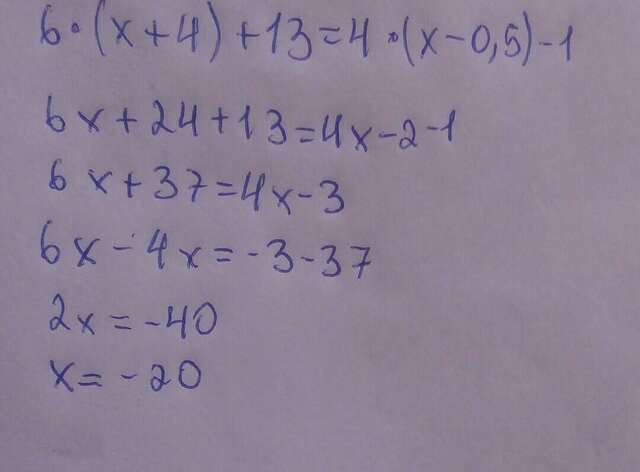 6·(x+4)+13=4·(x-0,5)-1
6x+24+13=4x-2-1
6x+37=4x-3
6x-4x=-3-37
2x=-40
x=-20